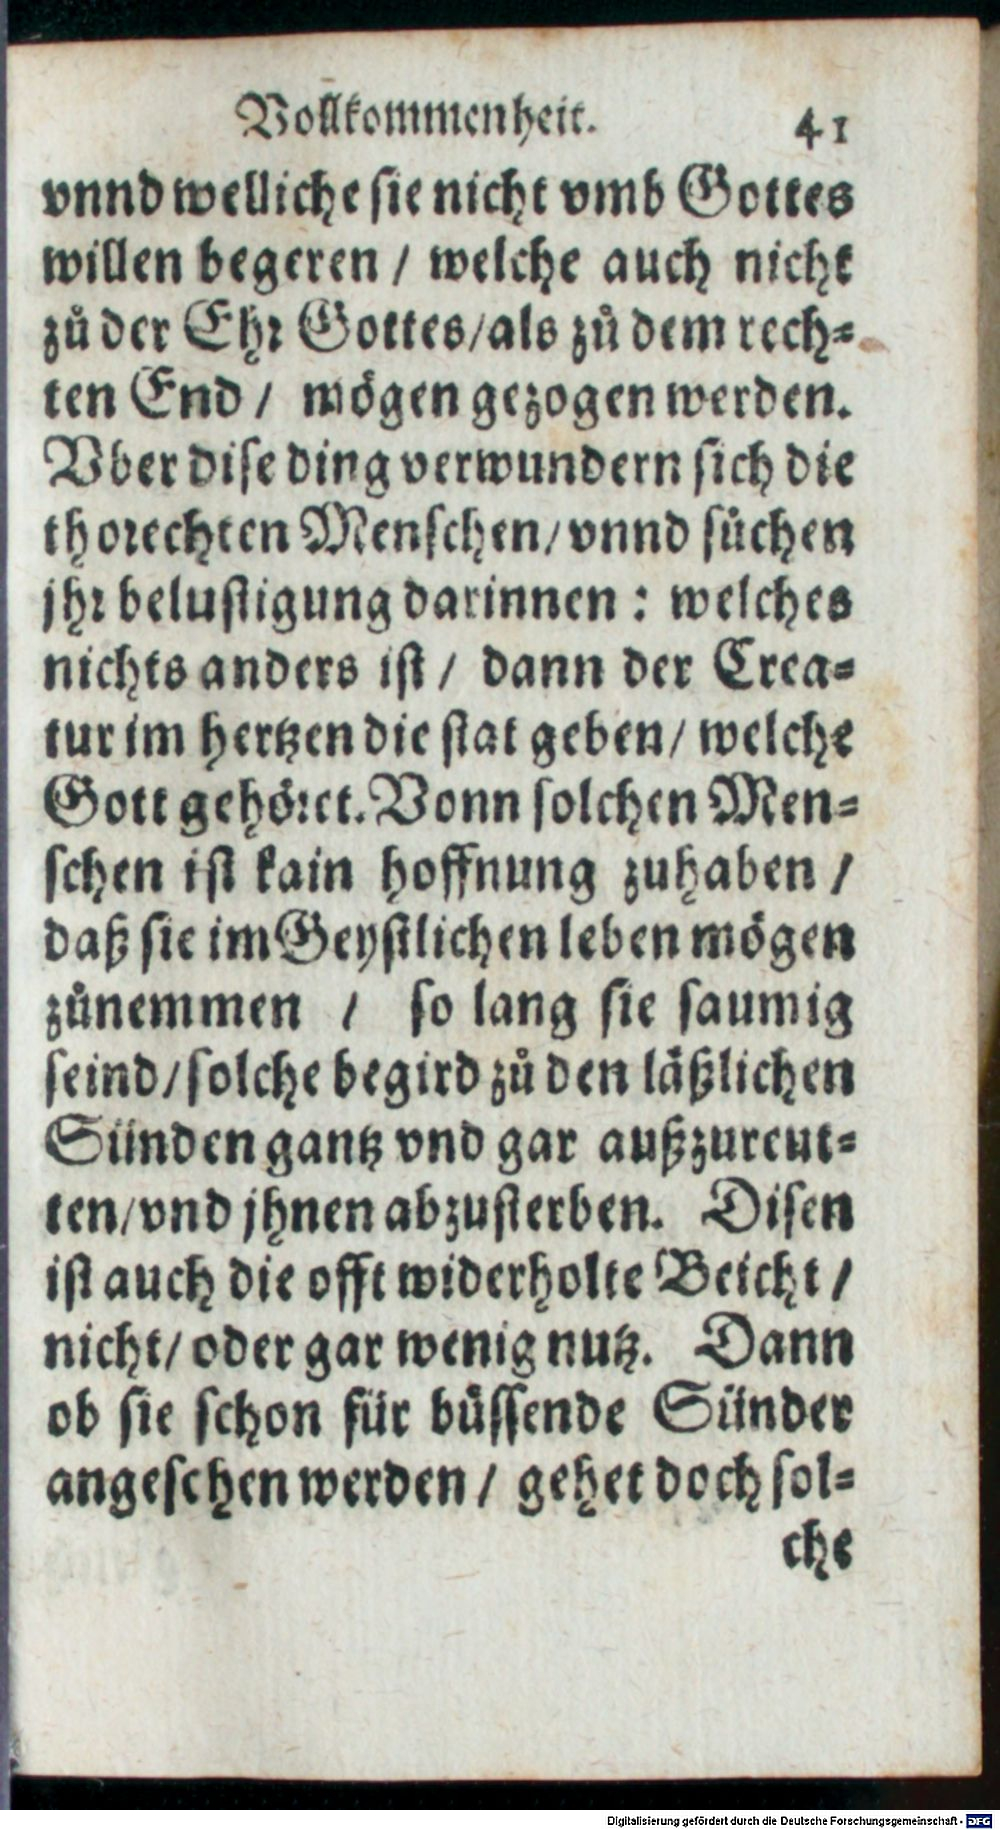 Vollkommenheit. 41
vnnd welliche sie nicht vmb Gottes
willen begeren / welche auch nicht
zů der Ehr Gottes/als zů dem rech-
ten End / mögen gezogen werden.
Vber dise ding verwundern sich die
thorechten Menschen/vnnd sůchen
jhr belustigung darinnen : welches
nichts anders ist / dann der Crea-
tur im hertzen die stat geben/ welche
Gott gehöret. Vonn solchen Men-
schen ist kain hoffnung zuhaben /
daß sie im Geystlichen leben mögen
zůnemmen / so lang sie saumig
seind/solche begird zů den läßlichen
Sünden gantz vnd gar außzureut-
ten/vnd jhnen abzusterben. Disen
ist auch die offt widerholte Beicht /
nicht/ oder gar wenig nutz. Dann
ob sie schon für büssende Sünder
angesehen werden / gehet doch sol-
che
Digitalisierung gefördert durch die Deutsche Forschungsgemeinschaft - DFG